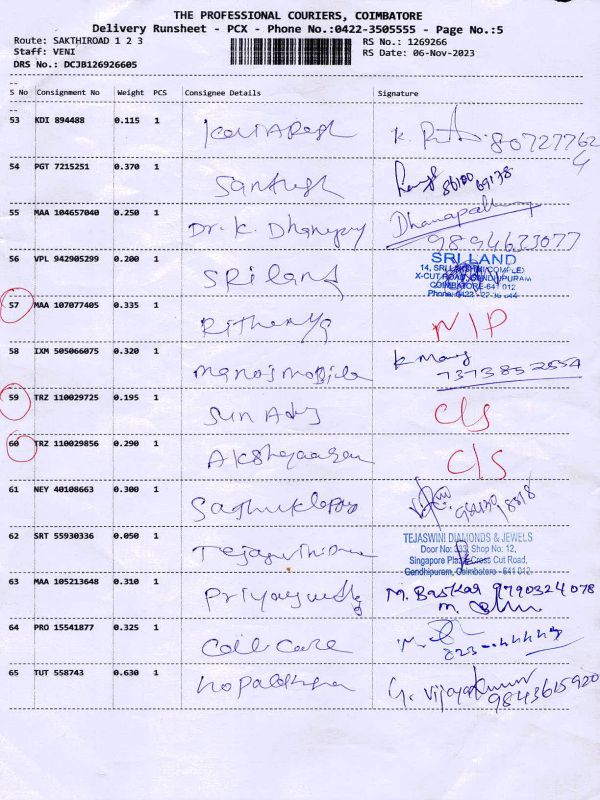 THE PROFESSIONAL COURIERS, COIMBATORE
Delivery Runsheet - PCX - Phone No.:0422-3505555 - Page No.:5
Route: SAKTHIROAD 1 2 3 RS No.: 1269266
Staff: VENI RS Date: 06-Nov-2023
DRS No.: DCJB126926605
S No Consignment No Weight PCS Consignee Details Signature
53 KDI 894488 0.115 1
54 PGT 7215251 0.370 1 Santhosh
55 MAA 104657040 0.250 1 Dr. K. Dhanapay Dhanapal
9894633077
56 VPL 942905299 0.200 1 SRiland SRI LAND
14, SRI LAKSHMI COMPLEX
X-CUT ROAD, GANDHIPURAM
COIMBATORE-641 012
57 MAA 107077405 0.335 1 Rithanya NIP
58 IXM 505066075 0.320 1 Manojs Mobile K
7373852554
59 TRZ 110029725 0.195 1 Sun Ads C/S
60 TRZ 110029856 0.290 1 C/S
61 NEY 40108663 0.300 1
62 SRT 55930336 0.050 1 TEJASWINI DIAMONDS & JEWELS
Door No: 333, Shop No: 12,
Singapore Plaza, Cross Cut Road,
Gandhipuram, Coimbatore - 641 012.
63 MAA 105213648 0.310 1 M. Baskar 9790324078
64 PRO 15541877 0.325 1 Coil Care
65 TUT 558743 0.630 1 G. Vijayakumar
9843615920